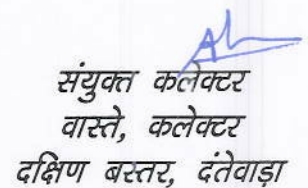 संयुक्त कलेक्टर
वास्ते, कलेक्टर
दक्षिण बस्तर, दंतेवाड़ा